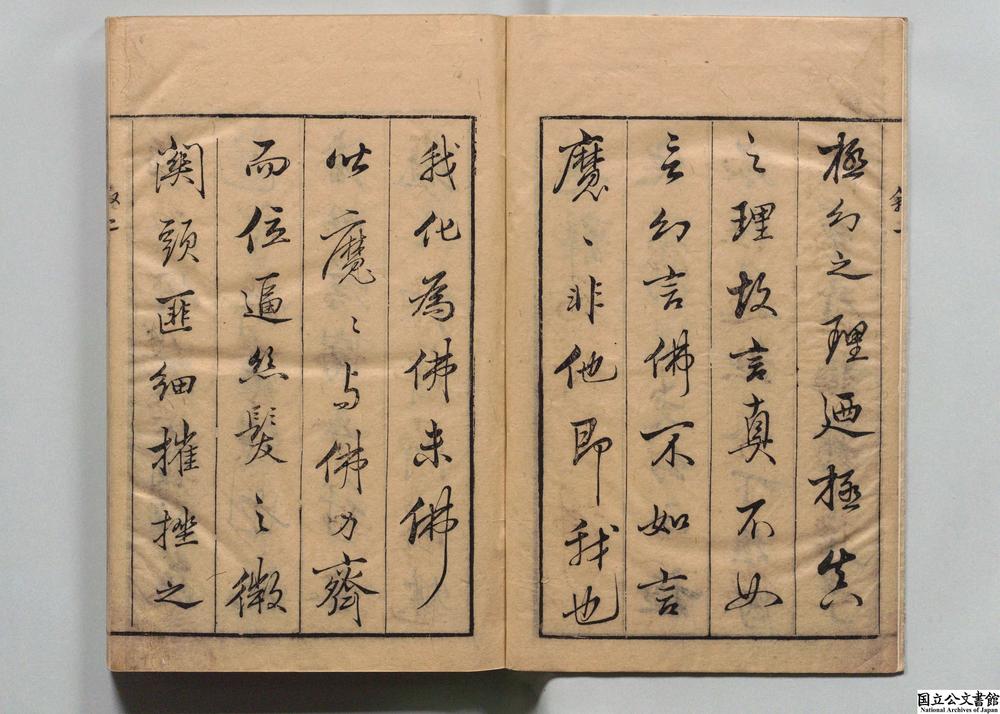 極幻之理迺極真
之理故言真不如
言幻言佛不如言
魔〻非他即我也
我化為佛未佛
皆魔〻与佛力齊
而位逼絲髮之微
関頭匪細摧挫之
国立公文書館
National Archives of Japan